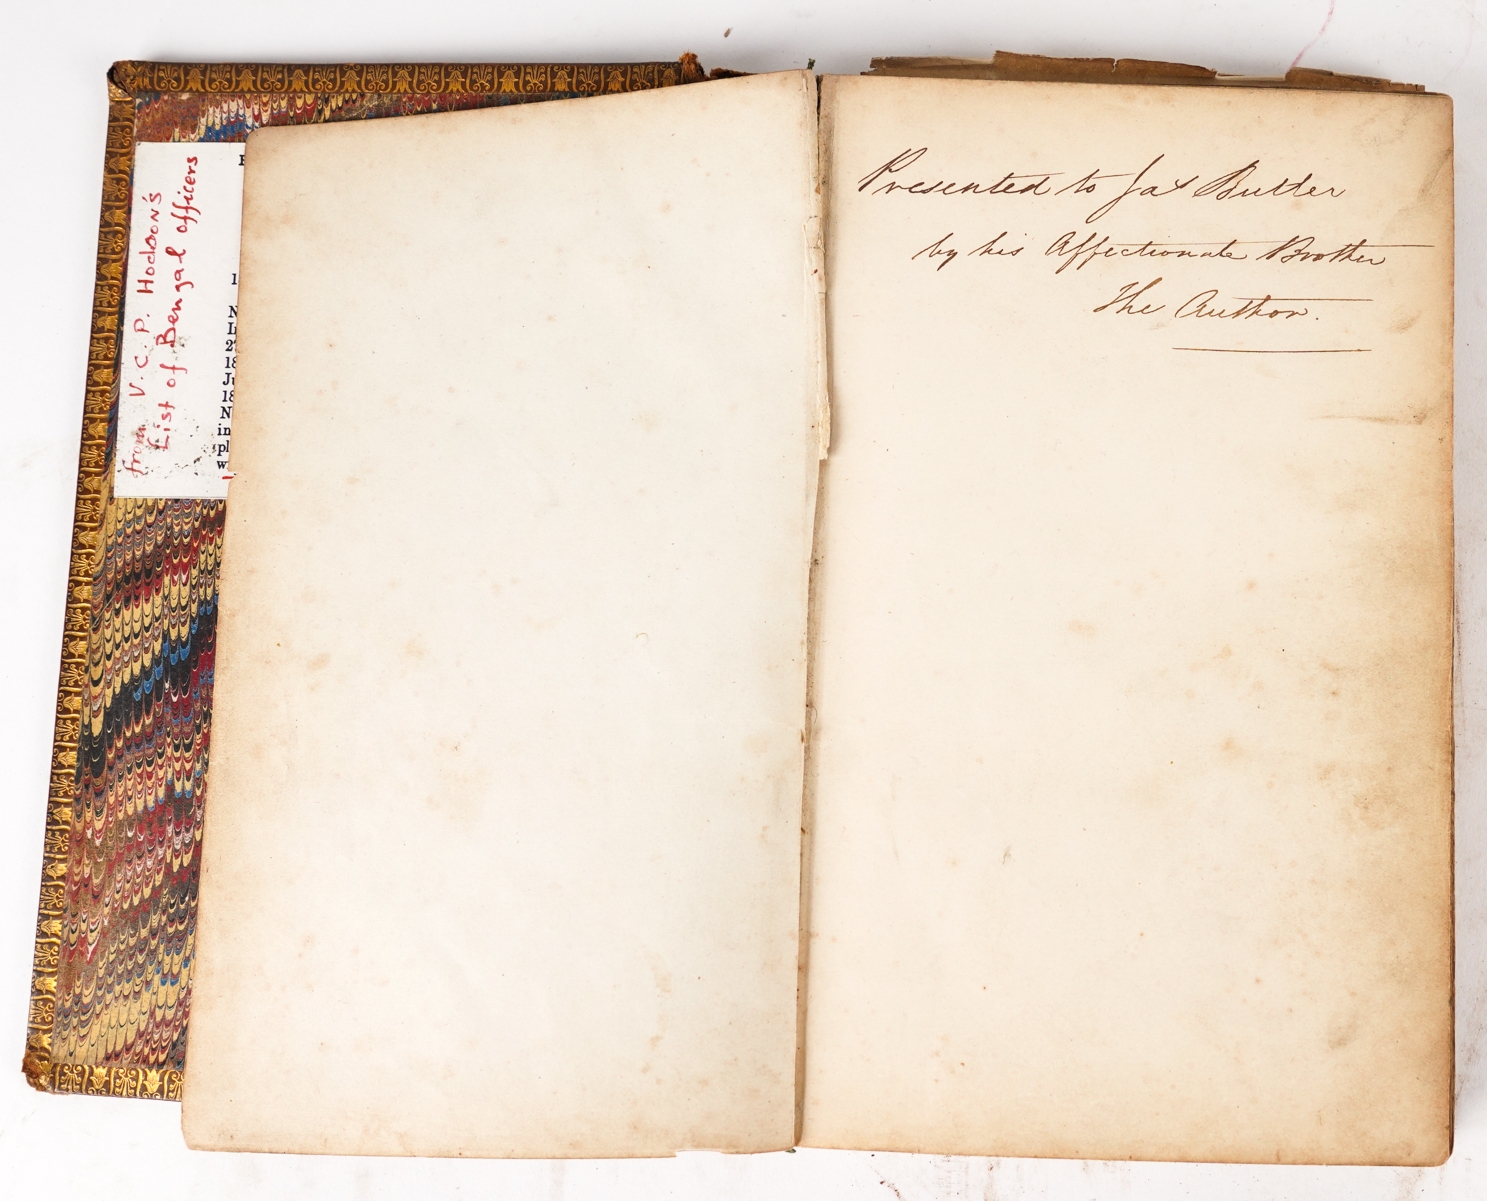 from V. C. P. Hodson's
List of Bengal Officers
1
N
2
18
Ju
18
N
in
pl
w
Presented to Jas Butter
by his Affectionate Brother
The Author.